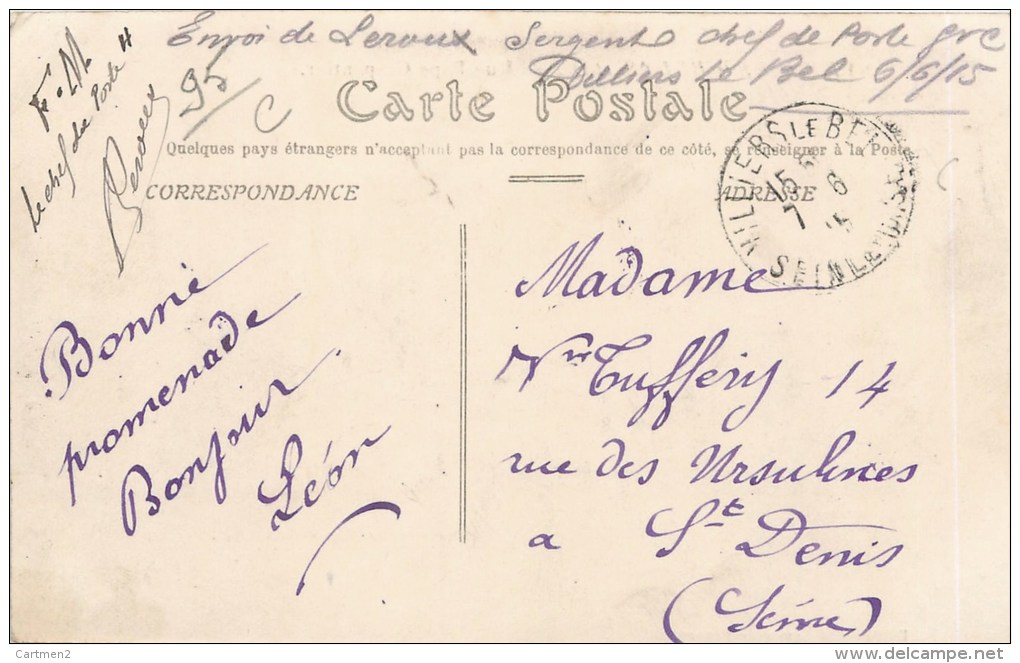 Envoi de Leroux Sergent chef de Poste gvc
Villiers le Bel 6/6/15
F. M
le chef de Poste H
Leroux
95/ C
Carte Postale
Quelques pays étrangers n'acceptent pas la correspondance de ce côté, se renseigner à la Poste
CORRESPONDANCE
ADRESSE
VILLIERS LE BEL
15
7 6
15
SEINE
Bonne
promenade
Bonjour
Léon
Madame
Vve Tuffery 14
rue des Ursulines
a St Denis
(Seine)
Cartmen2
www.delcampe.net